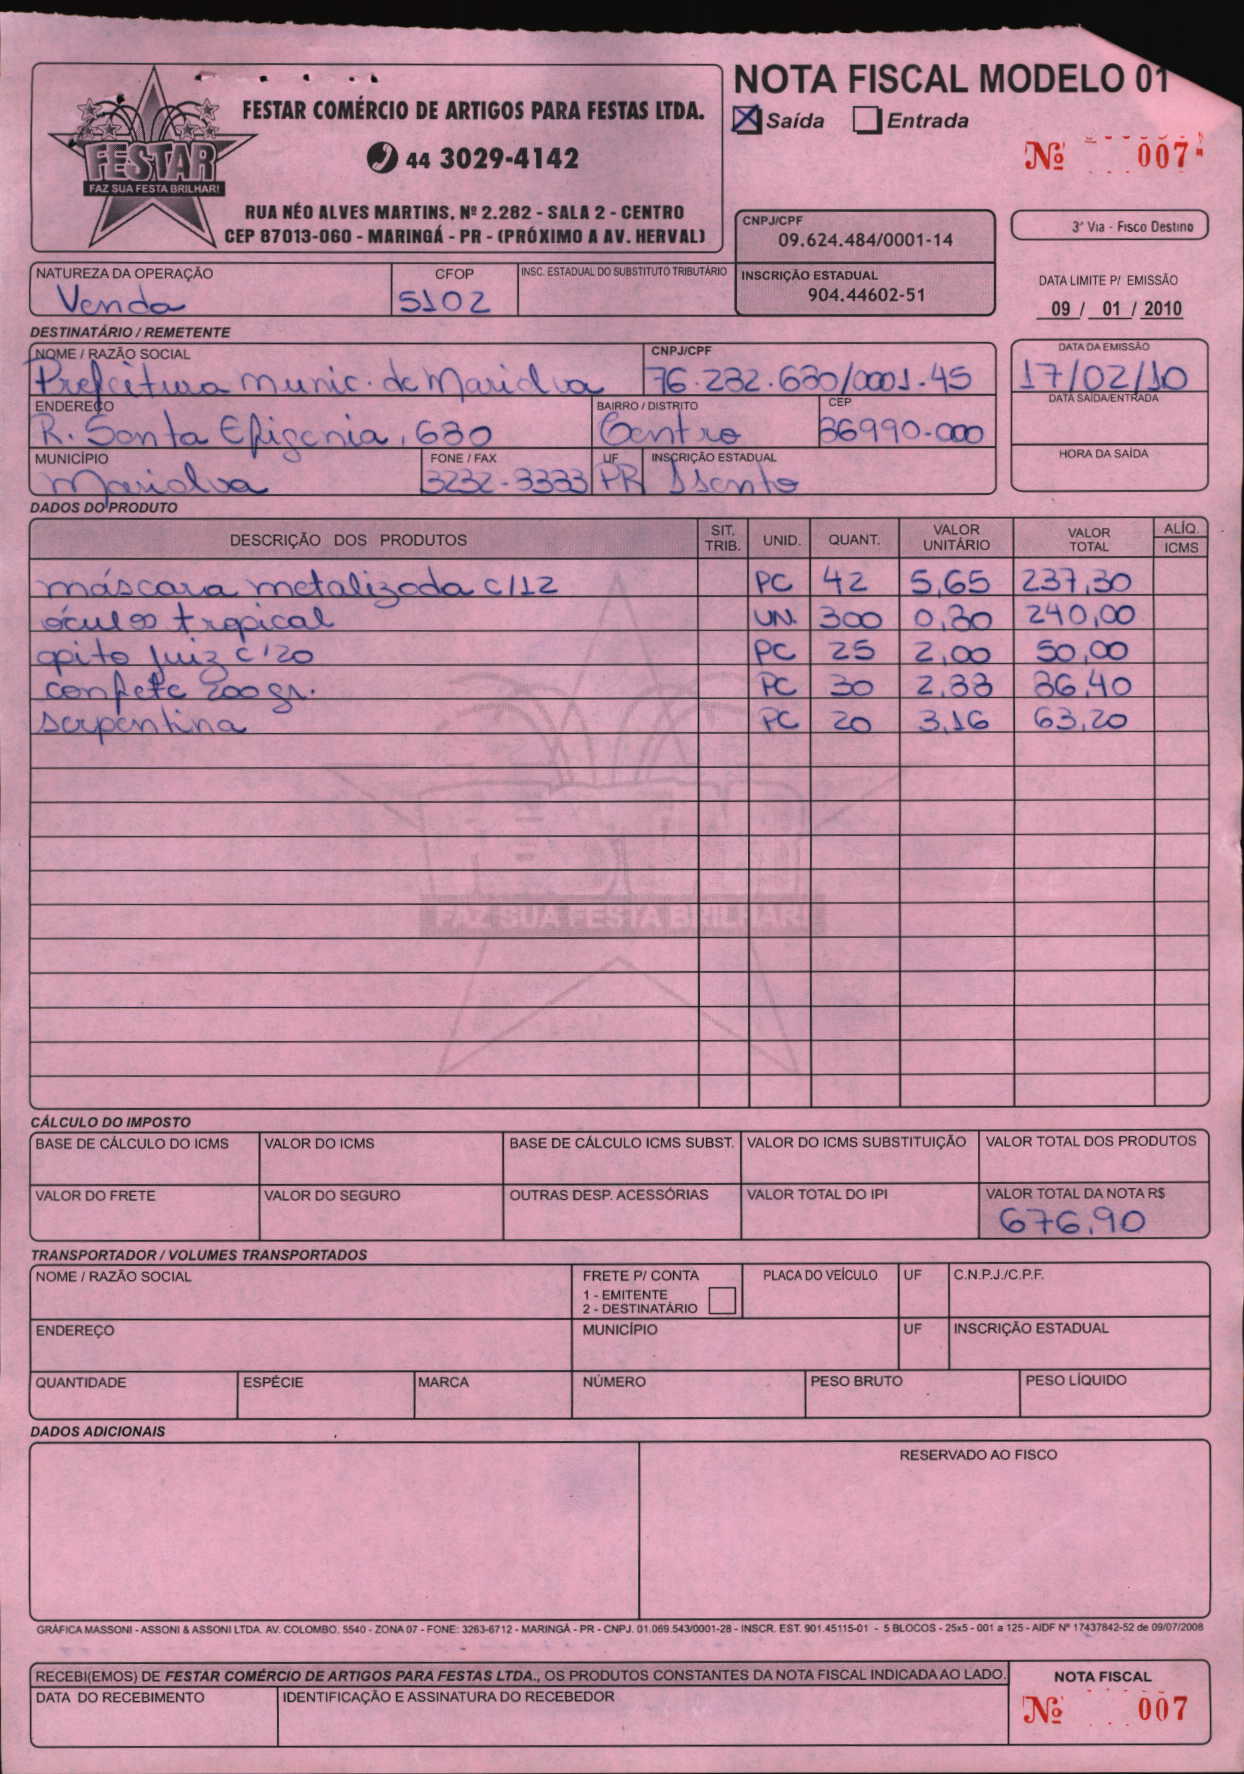 FESTAR
FAZ SUA FESTA BRILHAR!
FESTAR COMÉRCIO DE ARTIGOS PARA FESTAS LTDA.
44 3029-4142
RUA NÉO ALVES MARTINS, Nº 2.282 - SALA 2 - CENTRO
CEP 87013-060 - MARINGÁ - PR - (PRÓXIMO A AV. HERVAL)
NOTA FISCAL MODELO 01
Saída Entrada
Nº 007
CNPJ/CPF
09.624.484/0001-14
INSCRIÇÃO ESTADUAL
904.44602-51
3ª Via - Fisco Destino
DATA LIMITE P/ EMISSÃO
09 / 01 / 2010
NATUREZA DA OPERAÇÃO CFOP INSC. ESTADUAL DO SUBSTITUTO TRIBUTÁRIO
Venda 5102
DESTINATÁRIO / REMETENTE
NOME / RAZÃO SOCIAL CNPJ/CPF DATA DA EMISSÃO
Prefeitura Munic. de Marialva 76.282.680/0001-45 17/02/10
ENDEREÇO BAIRRO / DISTRITO CEP DATA SAÍDA/ENTRADA
R. Santa Efigenia, 680 Centro 86990-000
MUNICÍPIO FONE / FAX UF INSCRIÇÃO ESTADUAL HORA DA SAÍDA
Marialva PR Isento
DADOS DO PRODUTO
DESCRIÇÃO DOS PRODUTOS SIT. TRIB. UNID. QUANT. VALOR UNITÁRIO VALOR TOTAL ALÍQ. ICMS
máscara metalizada c/12 PC 42 5,65 237,30
óculos tropical UN. 300 0,80 240,00
apito juiz c/20 PC 25 2,00 50,00
confete 200gr. PC 30 2,88 86,40
serpentina PC 20 3,16 63,20
FAZ SUA FESTA BRILHAR!
CÁLCULO DO IMPOSTO
BASE DE CÁLCULO DO ICMS VALOR DO ICMS BASE DE CÁLCULO ICMS SUBST. VALOR DO ICMS SUBSTITUIÇÃO VALOR TOTAL DOS PRODUTOS
VALOR DO FRETE VALOR DO SEGURO OUTRAS DESP. ACESSÓRIAS VALOR TOTAL DO IPI VALOR TOTAL DA NOTA R$
676,90
TRANSPORTADOR / VOLUMES TRANSPORTADOS
NOME / RAZÃO SOCIAL FRETE P/ CONTA PLACA DO VEÍCULO UF C.N.P.J./C.P.F.
1 - EMITENTE
2 - DESTINATÁRIO
ENDEREÇO MUNICÍPIO UF INSCRIÇÃO ESTADUAL
QUANTIDADE ESPÉCIE MARCA NÚMERO PESO BRUTO PESO LÍQUIDO
DADOS ADICIONAIS
RESERVADO AO FISCO
GRÁFICA MASSONI - ASSONI & ASSONI LTDA. AV. COLOMBO, 5540 - ZONA 07 - FONE: 3263-6712 - MARINGÁ - PR - CNPJ. 01.069.543/0001-28 - INSCR. EST. 901.45115-01 - 5 BLOCOS - 25x5 - 001 a 125 - AIDF Nº 17437842-52 de 09/07/2008
RECEBI(EMOS) DE FESTAR COMÉRCIO DE ARTIGOS PARA FESTAS LTDA., OS PRODUTOS CONSTANTES DA NOTA FISCAL INDICADA AO LADO.
DATA DO RECEBIMENTO IDENTIFICAÇÃO E ASSINATURA DO RECEBEDOR
NOTA FISCAL
Nº 007